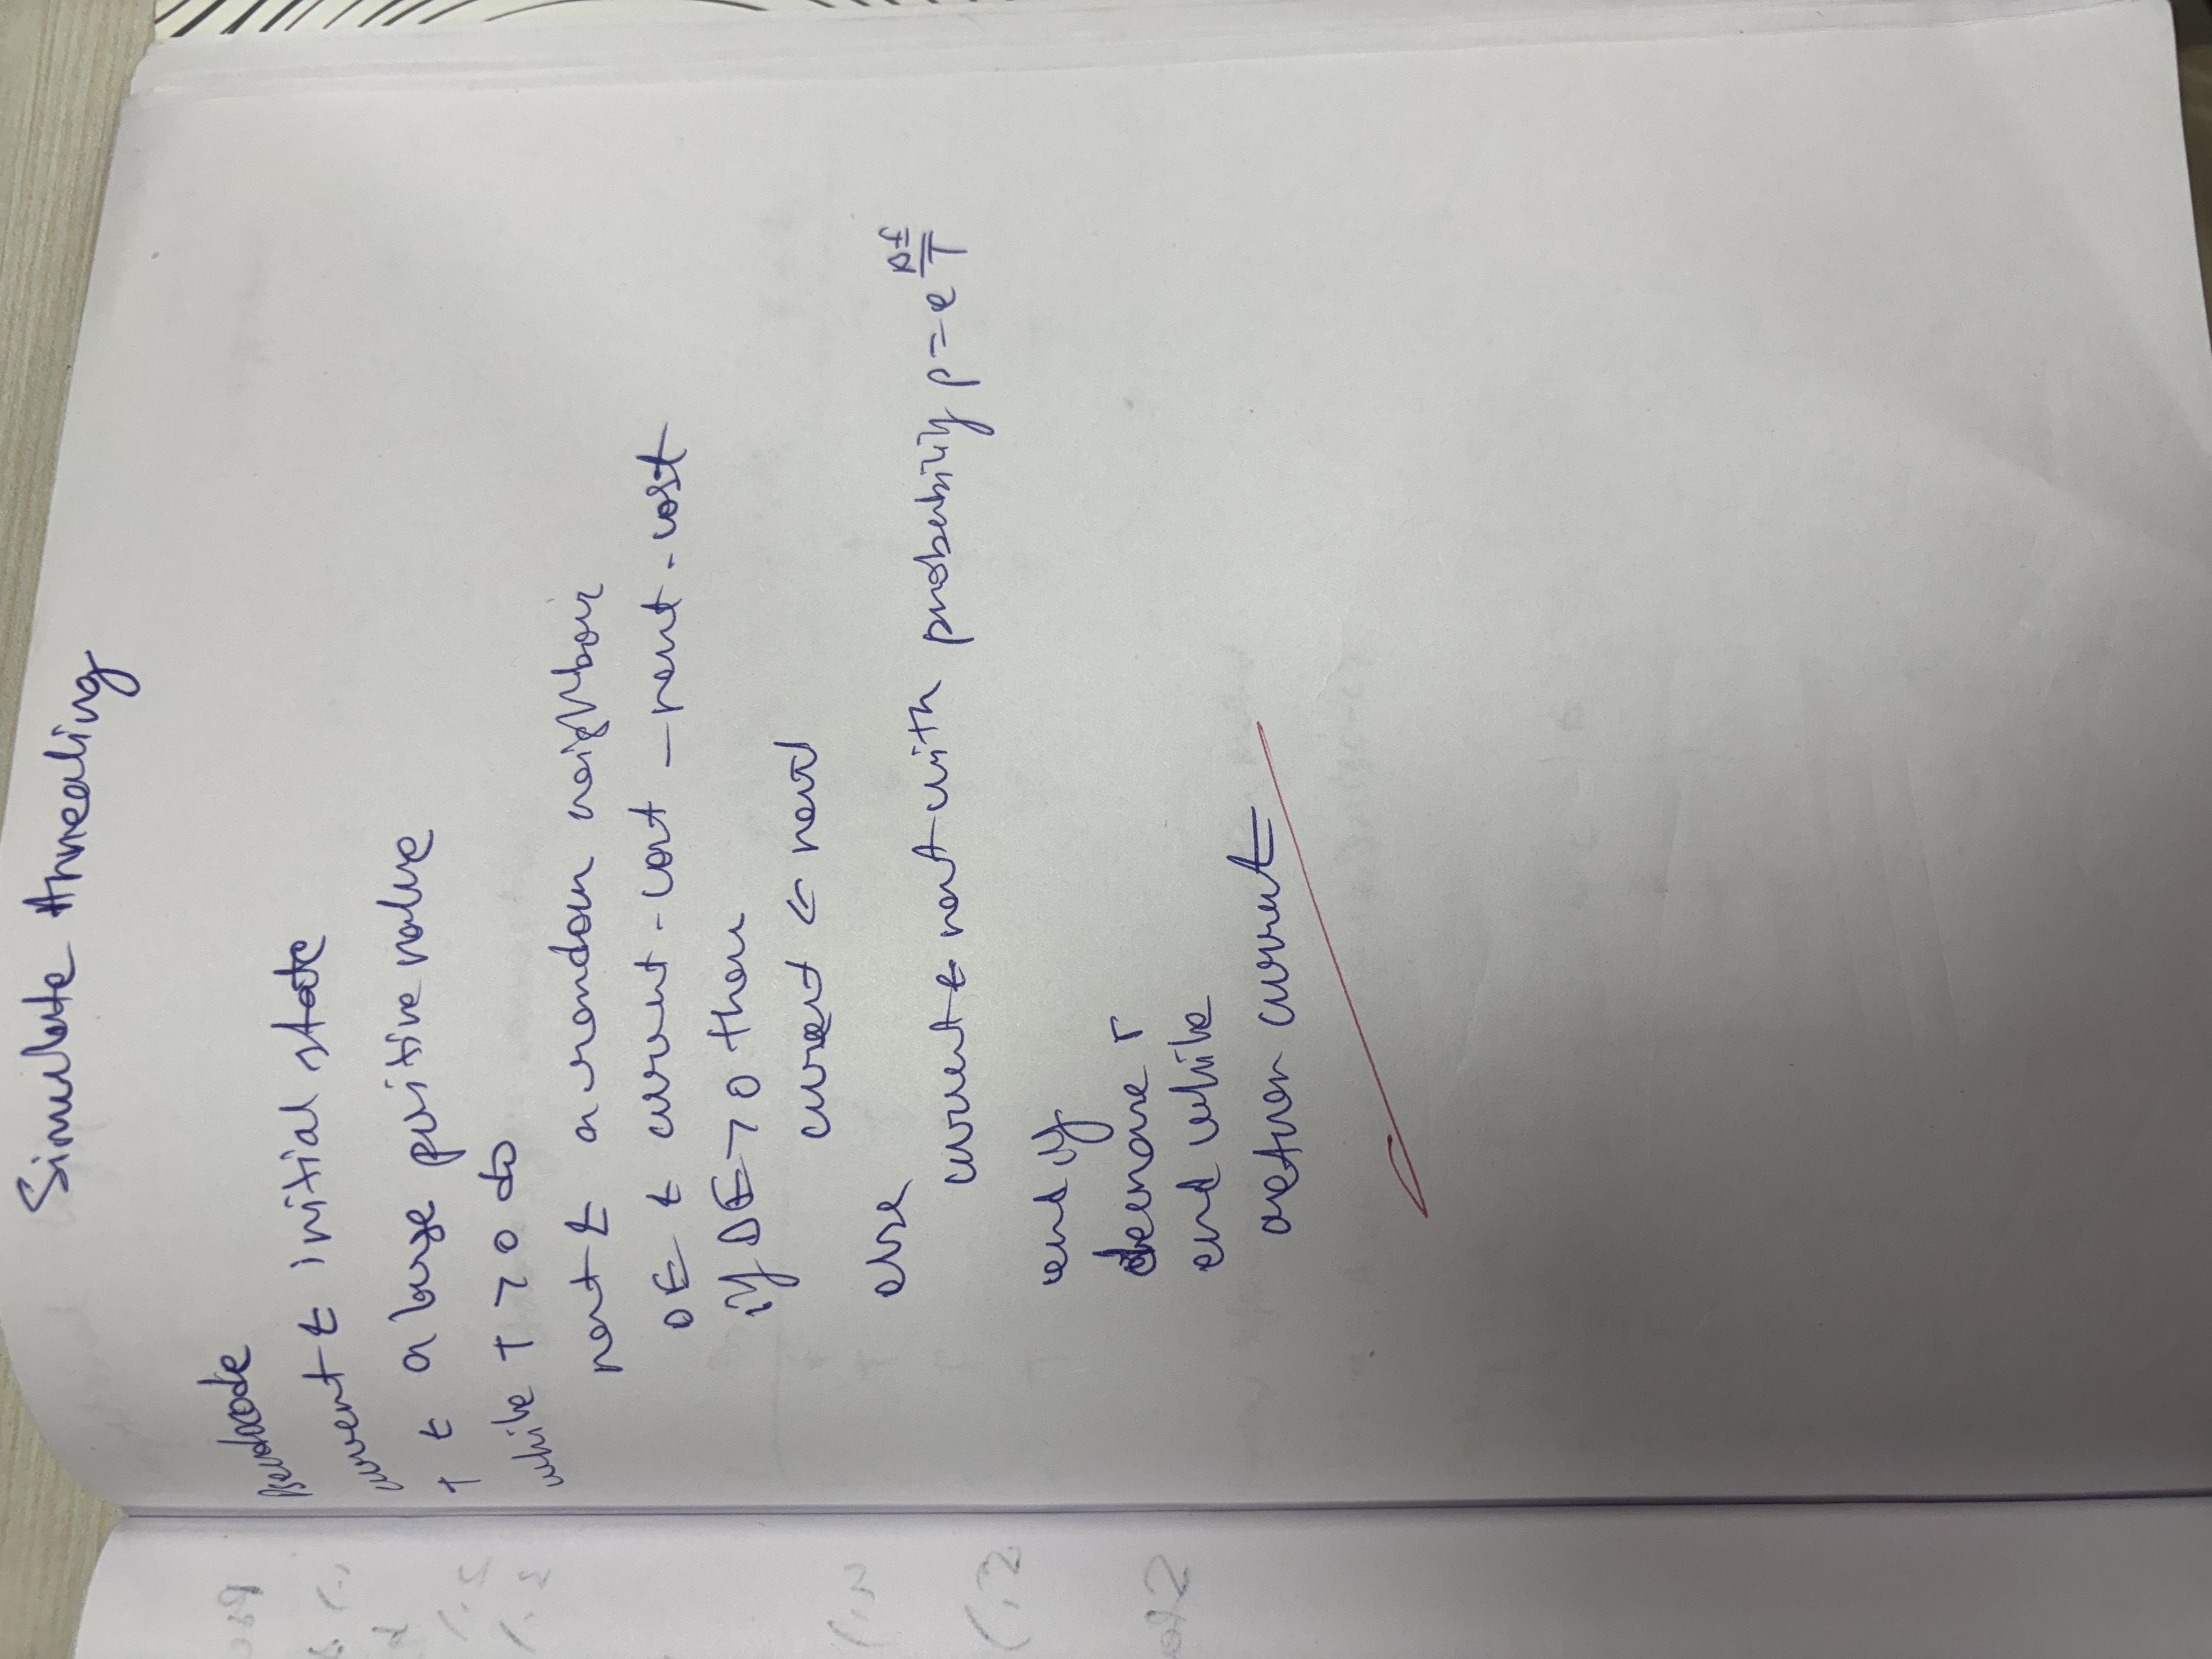 Simulate Annealing
Pseudocode
current ← initial state
T ← a large positive value
while T > 0 do
next ← a random neighbour
ΔE ← current-cost - next-cost
if ΔE > 0 then
current ← next
else
current ← next with probability p = e^(ΔE/T)
end if
decrease T
end while
return current